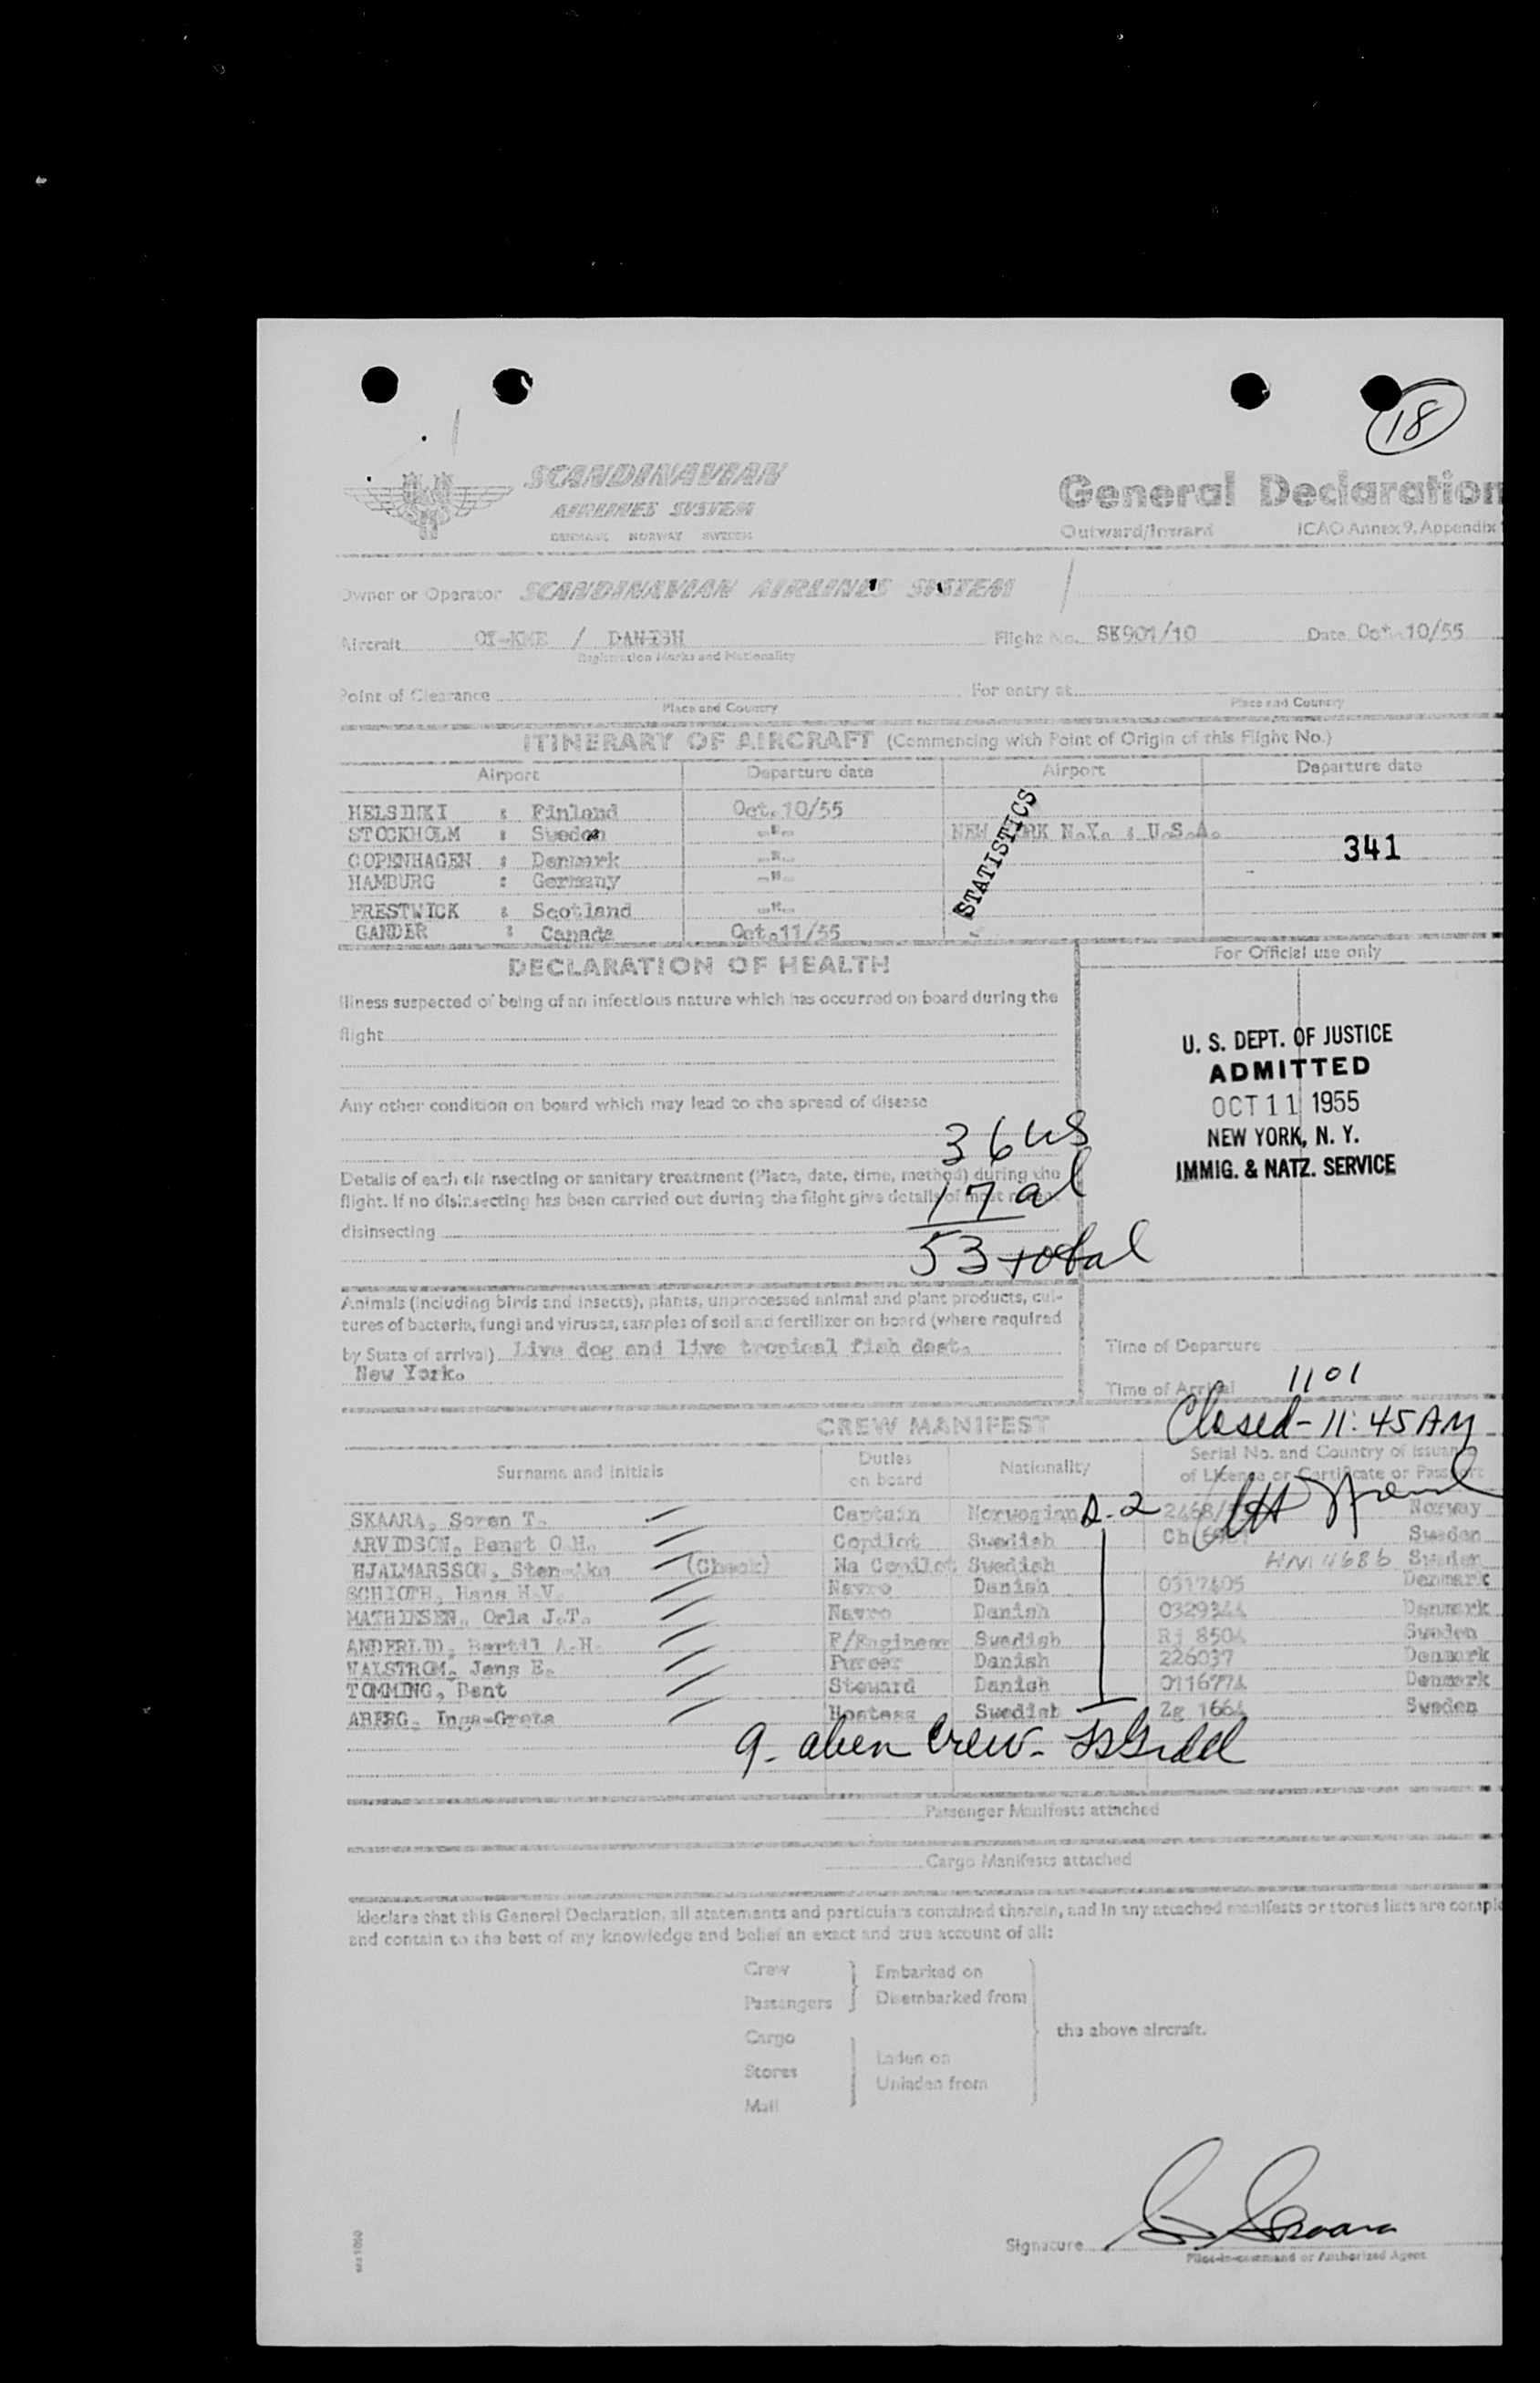 18
SCANDINAVIAN
AIRLINES SYSTEM
DENMARK NORWAY SWEDEN
General Declaration
Outward/Inward ICAO Annex 9, Appendix
Owner or Operator SCANDINAVIAN AIRLINES SYSTEM
Aircraft OY-KME / DANISH Flight No. SK901/10 Date Oct. 10/55
Registration Marks and Nationality
Point of Clearance For entry at
Place and Country Place and Country
ITINERARY OF AIRCRAFT (Commencing with Point of Origin of this Flight No.)
Airport Departure date Airport Departure date
HELSINKI : Finland Oct. 10/55
STOCKHOLM : Sweden -"- NEW YORK N.Y. : U.S.A.
STATISTICS
341
COPENHAGEN : Denmark -"-
HAMBURG : Germany -"-
PRESTWICK : Scotland -"-
GANDER : Canada Oct. 11/55
DECLARATION OF HEALTH
For Official use only
Illness suspected of being of an infectious nature which has occurred on board during the
flight
U. S. DEPT. OF JUSTICE
ADMITTED
OCT 11 1955
NEW YORK, N. Y.
IMMIG. & NATZ. SERVICE
Any other condition on board which may lead to the spread of disease
36 us
17 al
53 total
Details of each disinsecting or sanitary treatment (Place, date, time, method) during the
flight. If no disinsecting has been carried out during the flight give details of most recent
disinsecting
Animals (including birds and insects), plants, unprocessed animal and plant products, cul-
tures of bacteria, fungi and viruses, samples of soil and fertilizer on board (where required
by State of arrival) Live dog and live tropical fish dest.
New York.
Time of Departure
Time of Arrival 1101
Closed - 11:45 AM
CREW MANIFEST
Surname and initials Duties on board Nationality Serial No. and Country of Issuance of License or Certificate or Passport
SKAARA, Soren T. Captain Norwegian D-2 2468/ Norway
ARVIDSON, Bengt O.H. Copilot Swedish Ch Sweden
HJALMARSSON, Sten-Ake (Check) Na Copilot Swedish HN 4686 Sweden
SCHIOTH, Hans H.V. Navro Danish 0317605 Denmark
MATHIESEN, Orla J.T. Navro Danish 0329344 Denmark
ANDERLID, Bertil A.H. F/Engineer Swedish Rj 8504 Sweden
WALSTROM, Jens E. Purser Danish 226037 Denmark
TOMMING, Bent Steward Danish 0116774 Denmark
ABERG, Inga-Greta Hostess Swedish Zg 1664 Sweden
9 - alien Crew -
Passenger Manifests attached
Cargo Manifests attached
I declare that this General Declaration, all statements and particulars contained therein, and in any attached manifests or stores lists are comple
and contain to the best of my knowledge and belief an exact and true account of all:
Crew Embarked on
Passengers Disembarked from
the above aircraft.
Cargo
Laden on
Stores
Unladen from
Mail
Signature S Skaara
Pilot-in-command or Authorized Agent